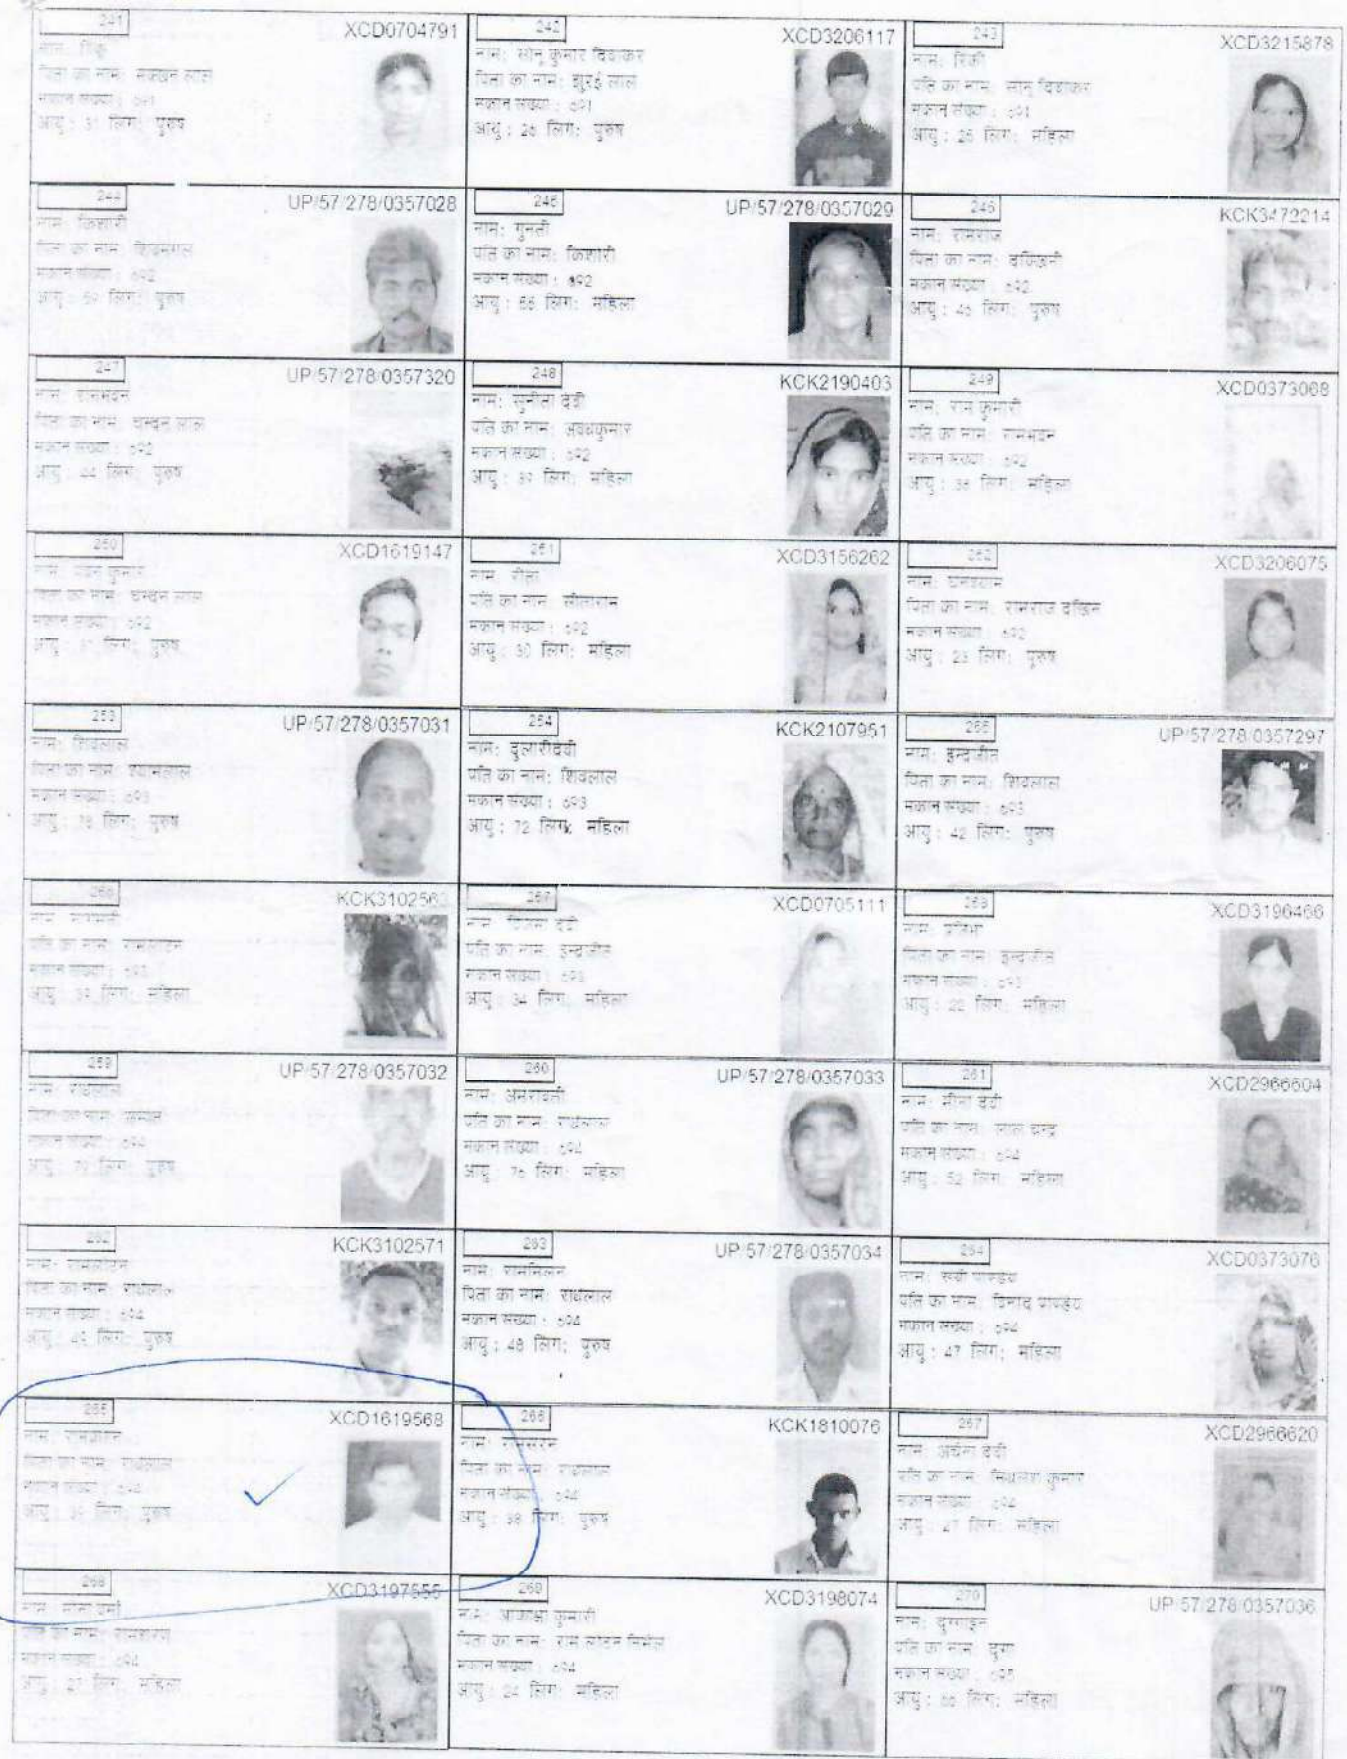 241 XCD0704791
नाम: रिंकू
पिता का नाम: मक्खन लाल
मकान संख्या : 691
आयु : 31 लिंग: पुरुष
242 XCD3206117
नाम: सोनू कुमार दिवाकर
पिता का नाम: झुरई लाल
मकान संख्या : 691
आयु : 26 लिंग: पुरुष
243 XCD3215878
नाम: रिंकी
पति का नाम: सोनू दिवाकर
मकान संख्या : 691
आयु : 26 लिंग: महिला
244 UP/57/278/0357028
नाम: किशोरी
पिता का नाम: शिवमंगल
मकान संख्या : 692
आयु : 59 लिंग: पुरुष
245 UP/57/278/0357029
नाम: गुनती
पति का नाम: किशोरी
मकान संख्या : 692
आयु : 56 लिंग: महिला
246 KCK3472214
नाम: रामराज
पिता का नाम: दक्खिनी
मकान संख्या : 692
आयु : 46 लिंग: पुरुष
247 UP/57/278/0357320
नाम: रामभवन
पिता का नाम: चन्दन लाल
मकान संख्या : 692
आयु : 44 लिंग: पुरुष
248 KCK2190403
नाम: सुनीता देवी
पति का नाम: अवधकुमार
मकान संख्या : 692
आयु : 39 लिंग: महिला
249 XCD0373068
नाम: राम कुमारी
पति का नाम: रामभवन
मकान संख्या : 692
आयु : 38 लिंग: महिला
250 XCD1619147
नाम: पवन कुमार
पिता का नाम: चन्दन लाल
मकान संख्या : 692
आयु : लिंग: पुरुष
251 XCD3156262
नाम: रीता
पति का नाम: सीताराम
मकान संख्या : 692
आयु : 30 लिंग: महिला
252 XCD3206075
नाम: घनश्याम
पिता का नाम: रामराज दखिन
मकान संख्या : 692
आयु : 23 लिंग: पुरुष
253 UP/57/278/0357031
नाम: शिवलाल
पिता का नाम: श्यामलाल
मकान संख्या : 693
आयु : 78 लिंग: पुरुष
254 KCK2107951
नाम: दुलारीदेवी
पति का नाम: शिवलाल
मकान संख्या : 693
आयु : 72 लिंग: महिला
255 UP/57/278/0357297
नाम: इन्द्रजीत
पिता का नाम: शिवलाल
मकान संख्या : 693
आयु : 42 लिंग: पुरुष
256 KCK310256
नाम:
पति का नाम: रामलोटन
मकान संख्या : 693
आयु : 39 लिंग: महिला
257 XCD0705111
नाम: देवी
पति का नाम: इन्द्रजीत
मकान संख्या : 693
आयु : 34 लिंग: महिला
258 XCD3196466
नाम: प्रतिभा
पिता का नाम: इन्द्रजीत
मकान संख्या : 693
आयु : 22 लिंग: महिला
259 UP/57/278/0357032
नाम: राधेलाल
पिता का नाम:
मकान संख्या : 694
आयु : लिंग: पुरुष
260 UP/57/278/0357033
नाम: अमरावती
पति का नाम: राधेलाल
मकान संख्या : 694
आयु : 76 लिंग: महिला
261 XCD2966604
नाम: मीना देवी
पति का नाम: लाल चन्द्र
मकान संख्या : 694
आयु : 52 लिंग: महिला
262 KCK3102571
नाम: रामलोटन
पिता का नाम: राधेलाल
मकान संख्या : 694
आयु : 49 लिंग: पुरुष
263 UP/57/278/0357034
नाम: राममिलन
पिता का नाम: राधेलाल
मकान संख्या : 694
आयु : 48 लिंग: पुरुष
264 XCD0373076
नाम: रूबी पाण्डेय
पति का नाम: विनोद पाण्डेय
मकान संख्या : 694
आयु : 47 लिंग: महिला
265 XCD1619568
नाम:
पिता का नाम: राधेलाल
मकान संख्या : 694
आयु : 39 लिंग: पुरुष
266 KCK1810076
नाम: रामसरन
पिता का नाम: राधेलाल
मकान संख्या : 694
आयु : 38 लिंग: पुरुष
267 XCD2966620
नाम: अर्चना देवी
पति का नाम: मिथलेश कुमार
मकान संख्या : 694
आयु : 27 लिंग: महिला
268 XCD3197555
नाम: वर्मा
पति का नाम: रामशरण
मकान संख्या : 694
आयु : 27 लिंग: महिला
269 XCD3198074
नाम: आकांक्षा कुमारी
पिता का नाम: राम लोटन निर्मल
मकान संख्या : 694
आयु : 24 लिंग: महिला
270 UP/57/278/0357036
नाम: दुर्गाइन
पति का नाम: दुर्गा
मकान संख्या : 695
आयु : 66 लिंग: महिला